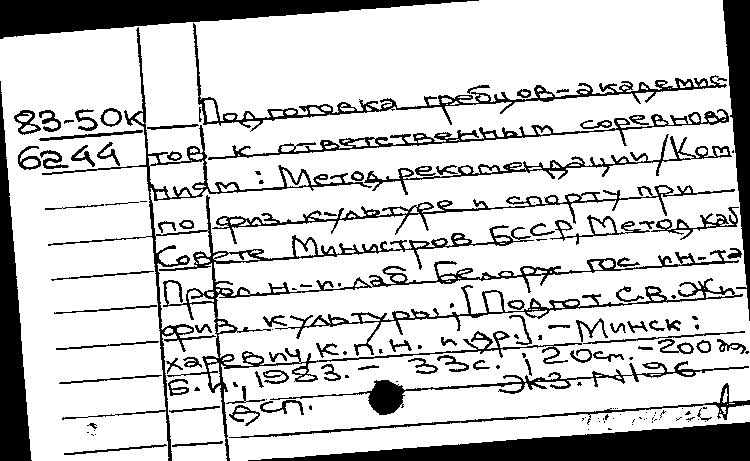 83-50к Подготовка гребцов-академис-
6244 тов к ответственным соревнова-
ниям: Метод. рекомендации/Ком.
по физ. культуре и спорту при
Совете Министров БССР, Метод. каб.
Пробл. н.-и. лаб. Белорус. гос. ин-та
физ. культуры; [Подгот. С.В. Жи-
харевич, к.п.н. и др.]. - Минск:
Б.и., 1983. - 33с.; 20см. - 200 экз.
ДСП. Экз. N196.